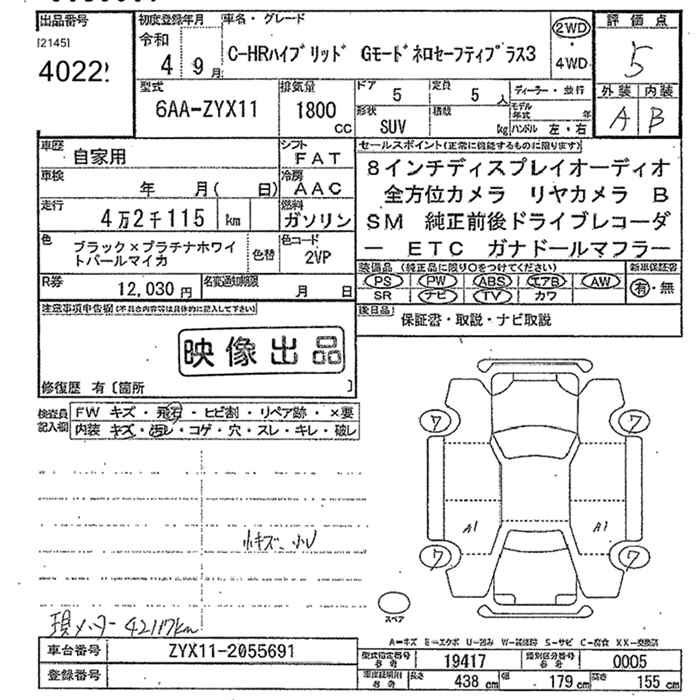 出品番号
[2145]
4022
初度登録年月
令和
4 9月
車名・グレード
C-HRハイブリッド Gモードネロセーフティプラス3
2WD
・
4WD
評価点
5
外装 内装
A B
型式
6AA-ZYX11
排気量
1800
CC
ドア 5
定員 5 人
ディーラー・並行
形状
SUV
積載
kg
モデル年式 年
ハンドル 左・右
車歴
自家用
シフト
FAT
車検
年 月( 日)
冷房
AAC
走行
4万2千115 km
燃料
ガソリン
色
ブラック×プラチナホワイ
トパールマイカ
色替
色コード
2VP
R券
12,030 円
名変通知期限
月 日
セールスポイント(正常に機能するものに限ります)
8インチディスプレイオーディオ
全方位カメラ リヤカメラ B
SM 純正前後ドライブレコーダ
ー ETC ガナドールマフラー
装備品 (純正品に限り○をつけてください)
PS PW ABS エアB AW
SR ナビ TV カワ
新車保証書
有・無
後日品
保証書・取説・ナビ取説
注意事項申告欄(不具合内容等は具体的に記入して下さい)
映像出品
修復歴 有〔箇所 〕
検査員
記入欄
FW キズ・飛石・ヒビ割・リペア跡・×要
内装 キズ・汚レ・コゲ・穴・スレ・キレ・破レ
ワ ワ
A1 A1
ワ ワ
小キズ、小U
スペア
現メーター 42117km
A=キズ E=エクボ U=凹み W=波修跡 S=サビ C=腐食 XX=交換済
車台番号
ZYX11-2055691
登録番号
型式指定番号
参考
19417
類別区分番号
参考
0005
車庫証明用
参考
長さ 438 cm
幅 179 cm
高さ 155 cm